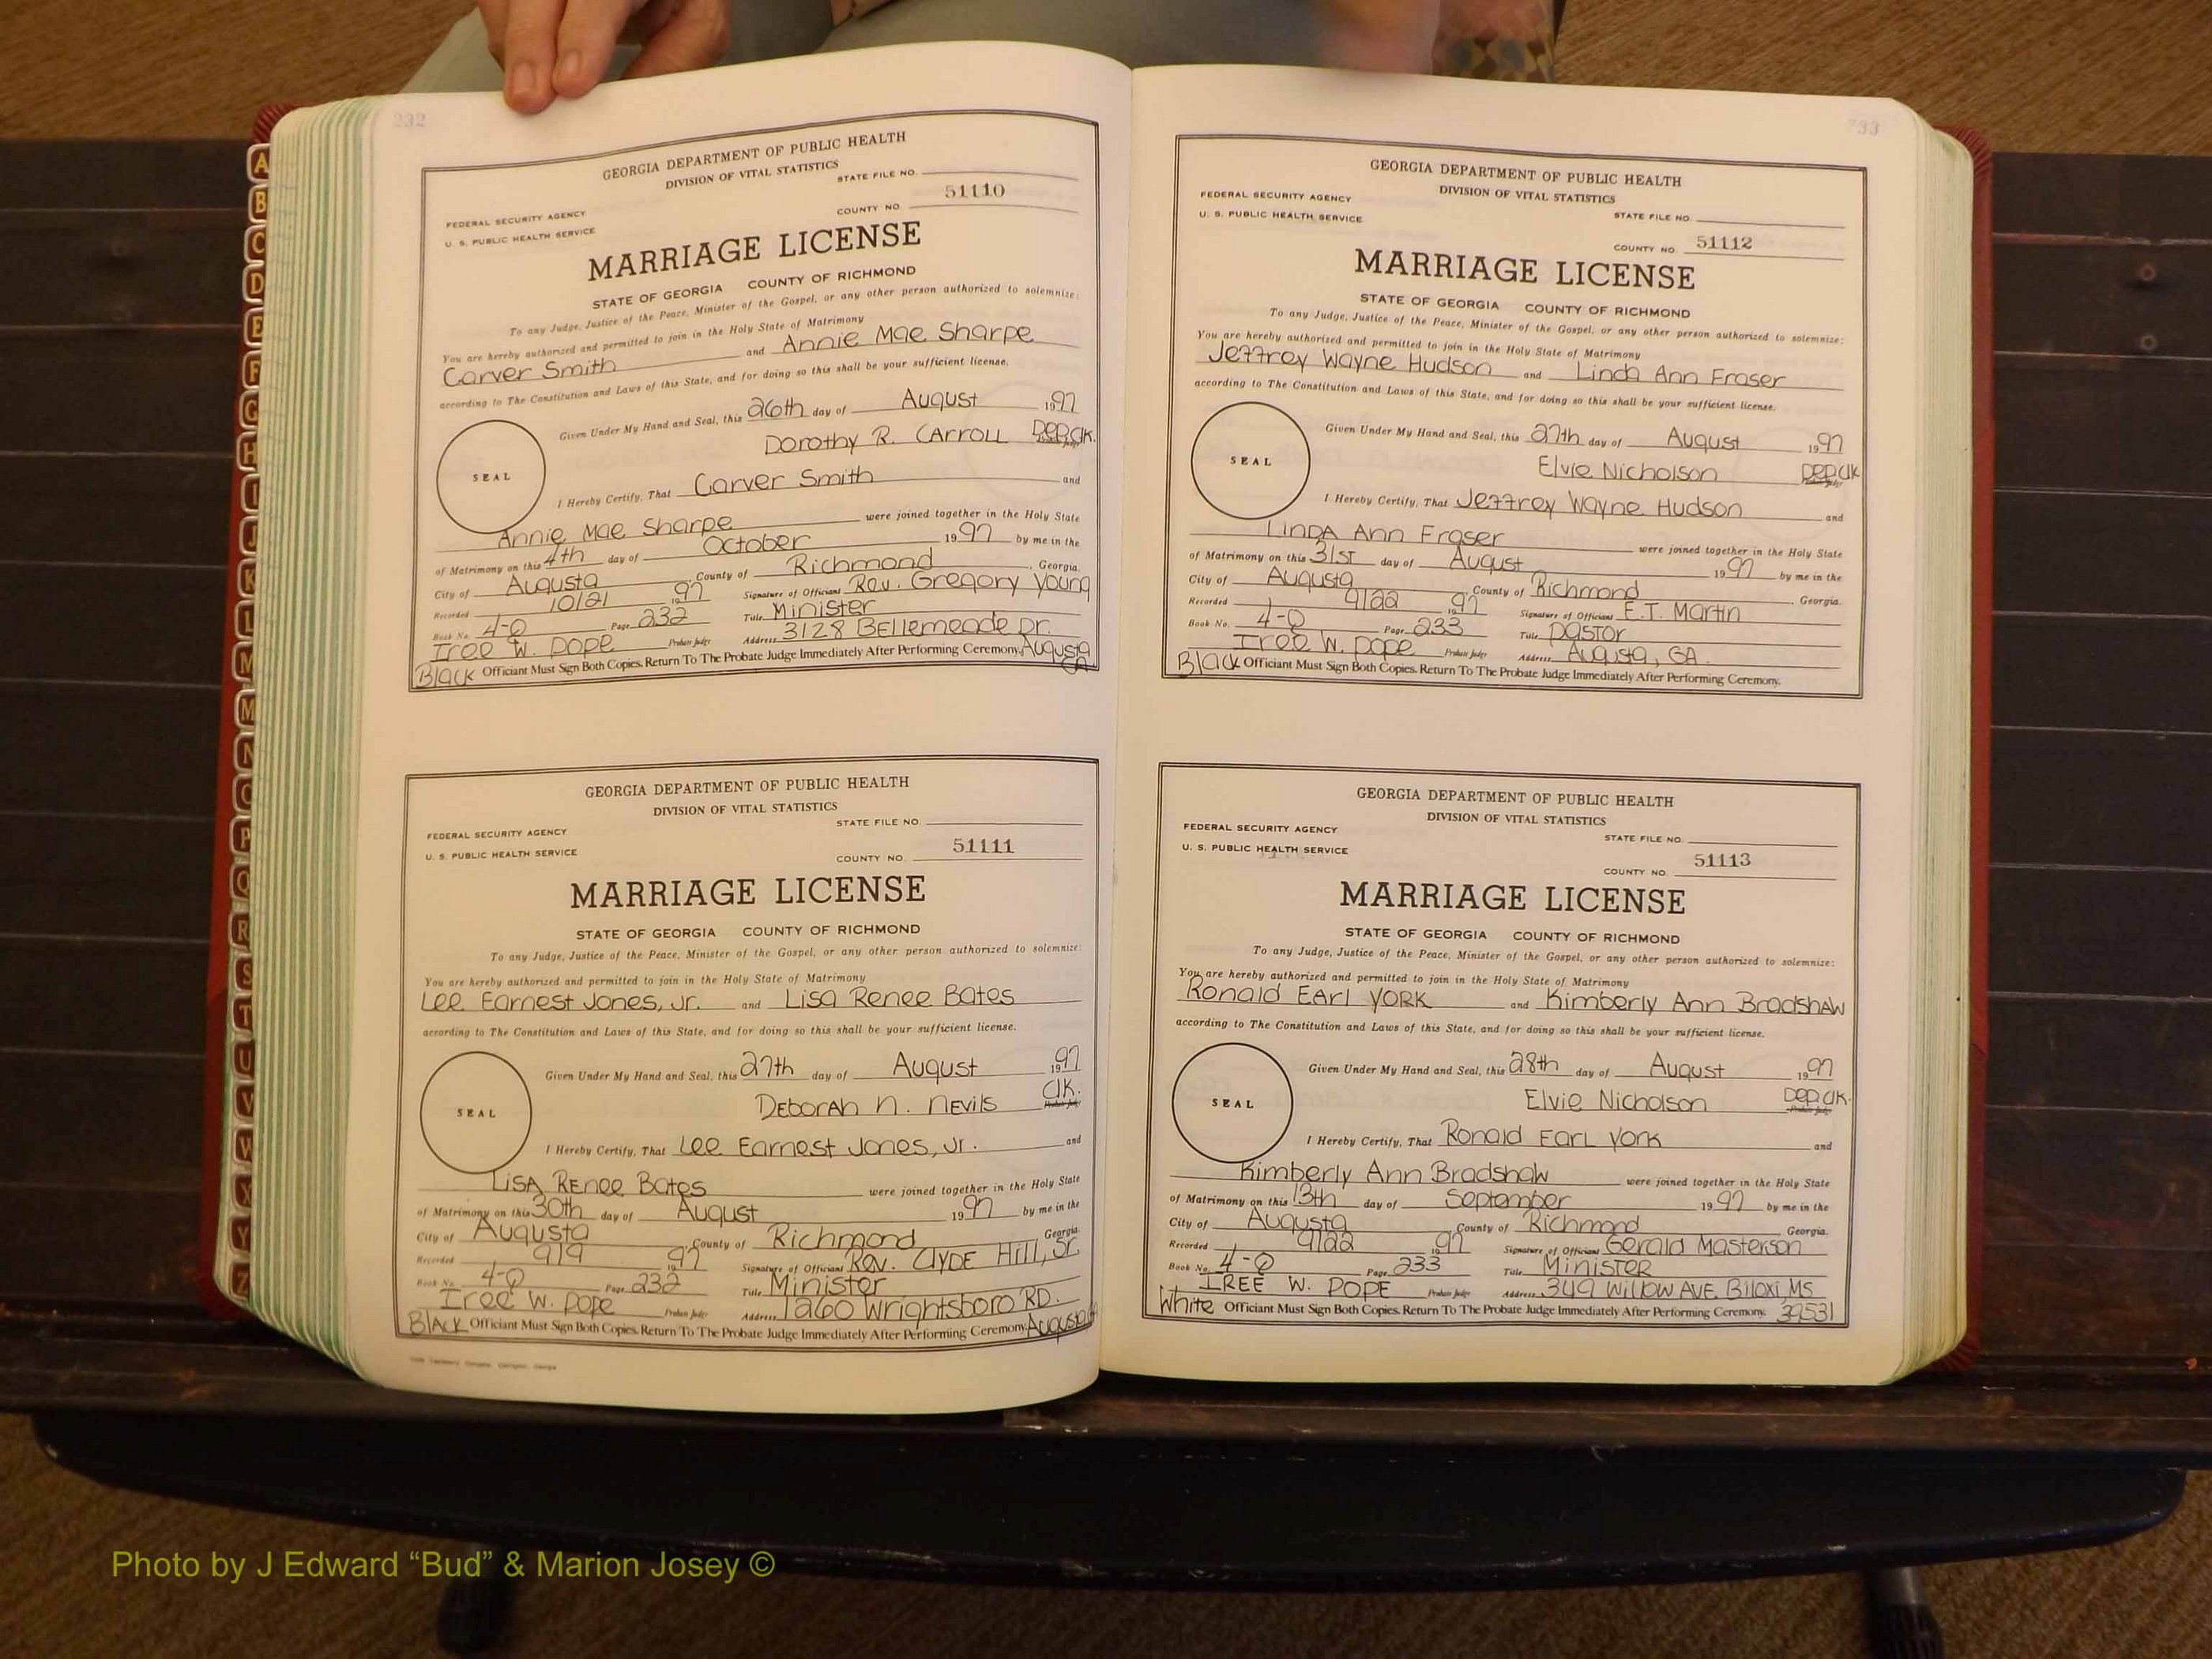 232
GEORGIA DEPARTMENT OF PUBLIC HEALTH
DIVISION OF VITAL STATISTICS
STATE FILE NO.
FEDERAL SECURITY AGENCY
COUNTY NO. 51110
U. S. PUBLIC HEALTH SERVICE
MARRIAGE LICENSE
STATE OF GEORGIA COUNTY OF RICHMOND
To any Judge, Justice of the Peace, Minister of the Gospel, or any other person authorized to solemnize:
You are hereby authorized and permitted to join in the Holy State of Matrimony
Carver Smith and Annie Mae Sharpe
according to The Constitution and Laws of this State, and for doing so this shall be your sufficient license.
Given Under My Hand and Seal, this 26th day of August 1997
Dorothy R. Carroll Dep. Clk.
SEAL
I Hereby Certify, That Carver Smith and
Annie Mae Sharpe were joined together in the Holy State
of Matrimony on this 4th day of October 1997 by me in the
City of Augusta, County of Richmond, Georgia.
Recorded 10/21 1997 Signature of Officiant Rev. Gregory Young
Book No. 4-Q Page 232 Title Minister
Iree W. Pope Probate Judge Address 3128 Bellemeade Dr.
Black Officiant Must Sign Both Copies. Return To The Probate Judge Immediately After Performing Ceremony. Augusta GA
GEORGIA DEPARTMENT OF PUBLIC HEALTH
DIVISION OF VITAL STATISTICS
STATE FILE NO.
FEDERAL SECURITY AGENCY
COUNTY NO. 51111
U. S. PUBLIC HEALTH SERVICE
MARRIAGE LICENSE
STATE OF GEORGIA COUNTY OF RICHMOND
To any Judge, Justice of the Peace, Minister of the Gospel, or any other person authorized to solemnize:
You are hereby authorized and permitted to join in the Holy State of Matrimony
Lee Earnest Jones, Jr. and Lisa Renee Bates
according to The Constitution and Laws of this State, and for doing so this shall be your sufficient license.
Given Under My Hand and Seal, this 27th day of August 1997
Deborah N. Nevils Clk.
SEAL
I Hereby Certify, That Lee Earnest Jones, Jr. and
Lisa Renee Bates were joined together in the Holy State
of Matrimony on this 30th day of August 1997 by me in the
City of Augusta, County of Richmond Georgia.
Recorded 9/9 1997 Signature of Officiant Rev. Clyde Hill, Sr.
Book No. 4-Q Page 232 Title Minister
Iree W. Pope Probate Judge Address 1260 Wrightsboro RD.
Black Officiant Must Sign Both Copies. Return To The Probate Judge Immediately After Performing Ceremony. Augusta
233
GEORGIA DEPARTMENT OF PUBLIC HEALTH
DIVISION OF VITAL STATISTICS
FEDERAL SECURITY AGENCY
STATE FILE NO.
U. S. PUBLIC HEALTH SERVICE
COUNTY NO. 51112
MARRIAGE LICENSE
STATE OF GEORGIA COUNTY OF RICHMOND
To any Judge, Justice of the Peace, Minister of the Gospel, or any other person authorized to solemnize:
You are hereby authorized and permitted to join in the Holy State of Matrimony
Jeffrey Wayne Hudson and Linda Ann Fraser
according to The Constitution and Laws of this State, and for doing so this shall be your sufficient license.
Given Under My Hand and Seal, this 27th day of August 1997
Elvie Nicholson Dep. Clk
SEAL
I Hereby Certify, That Jeffrey Wayne Hudson and
Linda Ann Fraser were joined together in the Holy State
of Matrimony on this 31st day of August 1997 by me in the
City of Augusta, County of Richmond, Georgia.
Recorded 9/22 1997 Signature of Officiant E.T. Martin
Book No. 4-Q Page 233 Title Pastor
Iree W. Pope Probate Judge Address Augusta, GA.
Black Officiant Must Sign Both Copies. Return To The Probate Judge Immediately After Performing Ceremony.
GEORGIA DEPARTMENT OF PUBLIC HEALTH
DIVISION OF VITAL STATISTICS
FEDERAL SECURITY AGENCY
STATE FILE NO.
U. S. PUBLIC HEALTH SERVICE
COUNTY NO. 51113
MARRIAGE LICENSE
STATE OF GEORGIA COUNTY OF RICHMOND
To any Judge, Justice of the Peace, Minister of the Gospel, or any other person authorized to solemnize:
You are hereby authorized and permitted to join in the Holy State of Matrimony
Ronald Earl York and Kimberly Ann Bradshaw
according to The Constitution and Laws of this State, and for doing so this shall be your sufficient license.
Given Under My Hand and Seal, this 28th day of August 1997
Elvie Nicholson Dep. Clk.
SEAL
I Hereby Certify, That Ronald Earl York and
Kimberly Ann Bradshaw were joined together in the Holy State
of Matrimony on this 13th day of September 1997 by me in the
City of Augusta, County of Richmond Georgia.
Recorded 9/22 1997 Signature of Officiant Gerald Masterson
Book No. 4-Q Page 233 Title Minister
IREE W. POPE Probate Judge Address 349 Willow AVE. Biloxi, MS
White Officiant Must Sign Both Copies. Return To The Probate Judge Immediately After Performing Ceremony. 39531
A
B
C
D
E
F
G
H
I
J
K
L
M
M
N
O
P
Q
R
S
T
U
V
W
X
Y
Z
Photo by J Edward “Bud” & Marion Josey ©